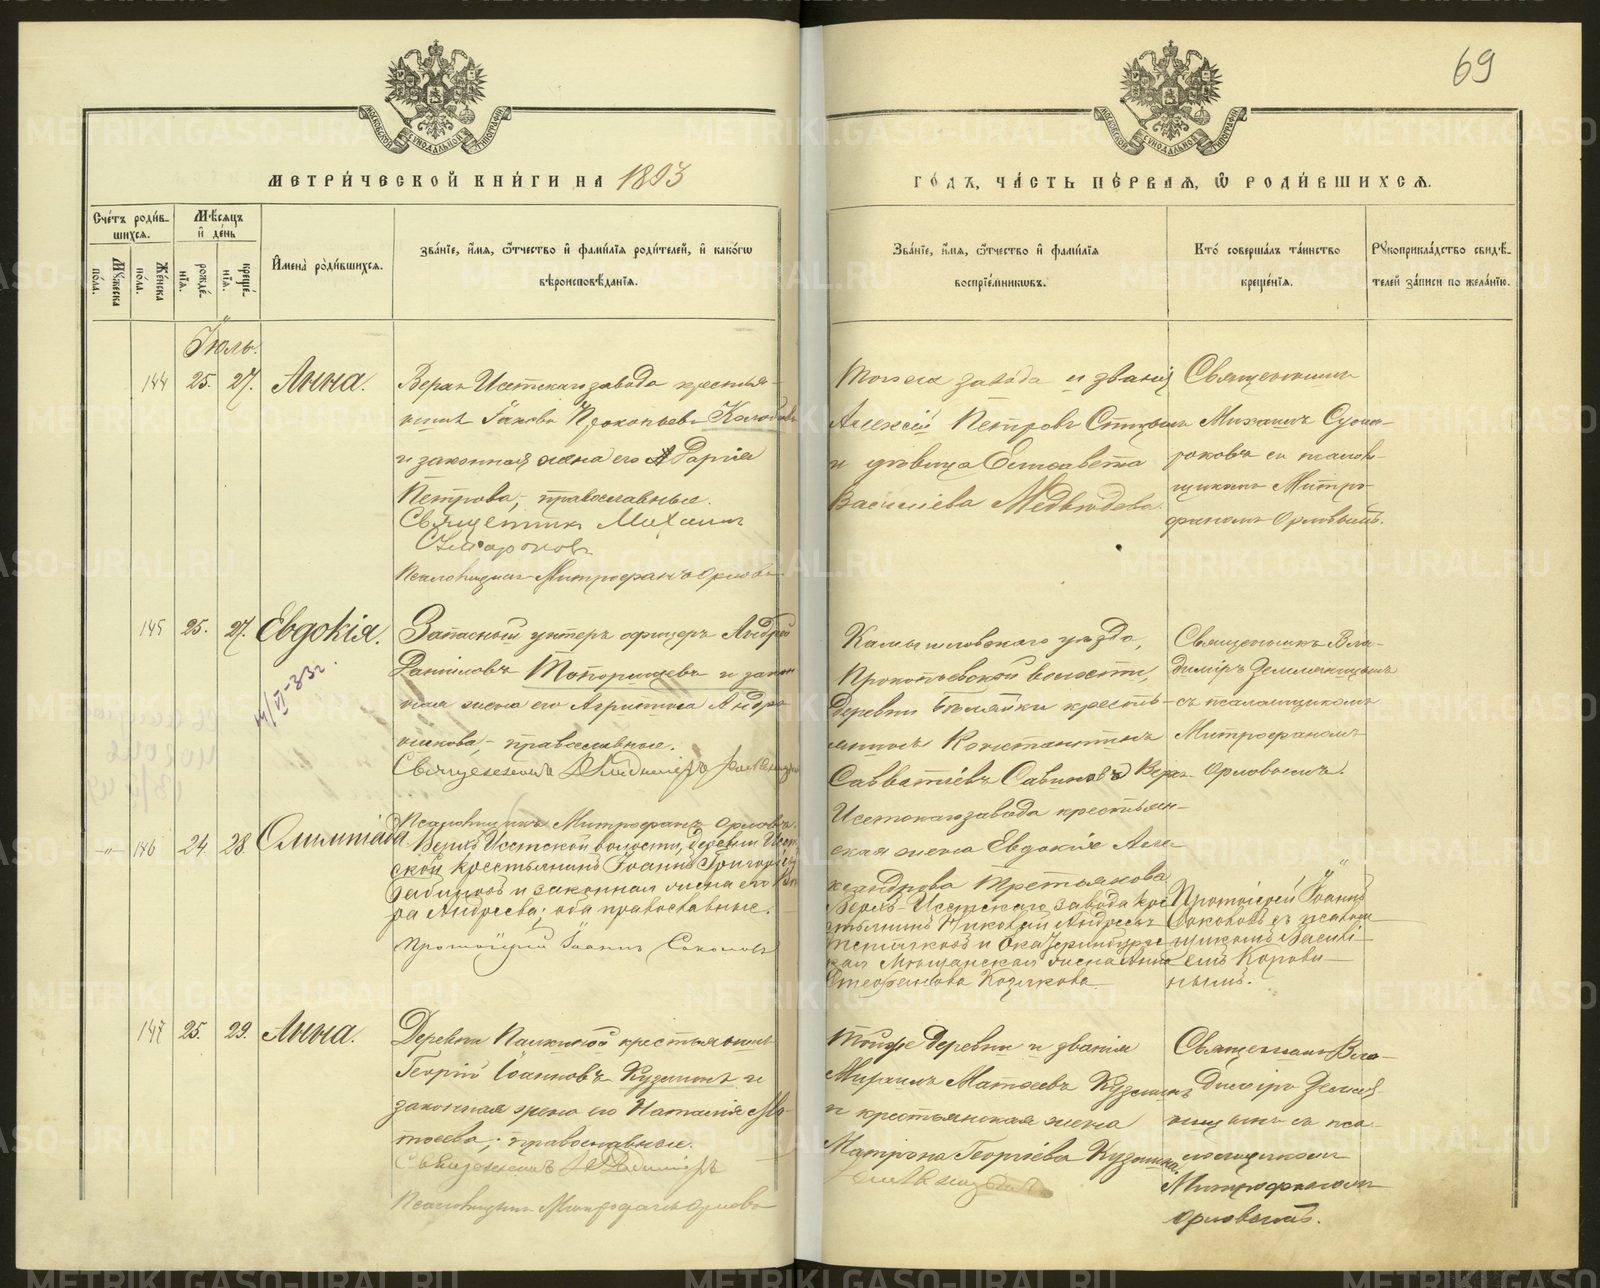 69
МОСКОВСКОЙ СѴНОДАЛЬНОЙ ТИПОГРАФІИ
МОСКОВСКОЙ СѴНОДАЛЬНОЙ ТИПОГРАФІИ
МЕТРИ́ЧЕСКОЙ КНИ́ГИ НА 1893
ГО́ДЪ, ЧА́СТЬ ПЕ́РВАЯ, Ѿ РОДИ́ВШИХСЯ.
Сче́тъ роди́в-
шихся.
Мѣ́сяцъ
и҆ де́нь
Мꙋ́жеска по́ла.
Же́нска по́ла.
рожде́нїя.
креще́нїя.
И҆мена̀ роди́вшихся.
зва́нїе, и҆́мя, ѻ҆́тчество и҆ фами́лїя роди́телей, и҆ како́гѡ
вѣроисповѣ́данїя.
Зва́нїе, и҆́мя, ѻ҆́тчество и҆ фами́лїя
воспрїе́мникѡвъ.
Кто̀ соверша́лъ та́инство
креще́нїя.
Рꙋкоприкла́дство свидѣ́-
телей за́писи по жела́нїю.
Іюль.
144 25. 27. Анна.
Верхъ Исетскаго завода крестья-
нинъ Іаковъ Прокопьевъ
и законная жена его Дарія
Петрова, православные.
Священникъ Михаилъ
Псаломщикъ Митрофанъ Орловъ
Тогоже завода и званія
Алексѣй Петровъ
и дѣвица Елисавета
Василіева Медвѣдева.
Священникъ
Михаилъ
съ псалом-
щикомъ Митро-
фаномъ Орловымъ.
145 25. 27. Евдокія.
14/VI-33г.
Запасный унтеръ офицеръ Андрей
Даниловъ Топорищевъ и закон-
ная жена его Агриппина Андро-
никова, православные.
Священникъ Владиміръ
Псаломщикъ Митрофанъ Орловъ.
Камышловскаго уѣзда,
Прокопьевской волости,
деревни крестья-
нинъ Константинъ
Савватіевъ Савиновъ Верхъ
Исетскаго завода крестьян-
ская жена Евдокія Але-
ксандрова Третьякова
Священникъ Вла-
диміръ
съ псаломщикомъ
Митрофаномъ
Орловымъ.
-"- 146 24. 28. Олимпіада
Верхъ Исетской волости, деревни Исет-
ской крестьянинъ Іоаннъ Григорьевъ
и законная жена его
Андреева; оба православные.
Протоіерей Іоаннъ Соколовъ
Верхъ-Исетскаго завода кре-
стьянинъ Николай Андреевъ
и Екатеринбург-
ская мѣщанская жена Анна
Стефанова Козлкова
Протоіерей Іоаннъ
Соколовъ съ псалом-
щикомъ Василі-
емъ Корови-
нымъ.
147 25. 29. Анна.
Деревни Палкиной крестьянинъ
Георгій Іоанновъ Кузминъ и
законная жена его Наталія Ма-
тѳеева; православные.
Священникъ Владиміръ
Псаломщикъ Митрофанъ Орловъ
Тойже деревни и званія
Михаилъ Матѳеевъ Кузминъ
и крестьянская жена
Матрона Георгіева Кузмина.
Священникъ Вла-
диміръ
съ пса-
ломщикомъ
Митрофаномъ
Орловымъ.